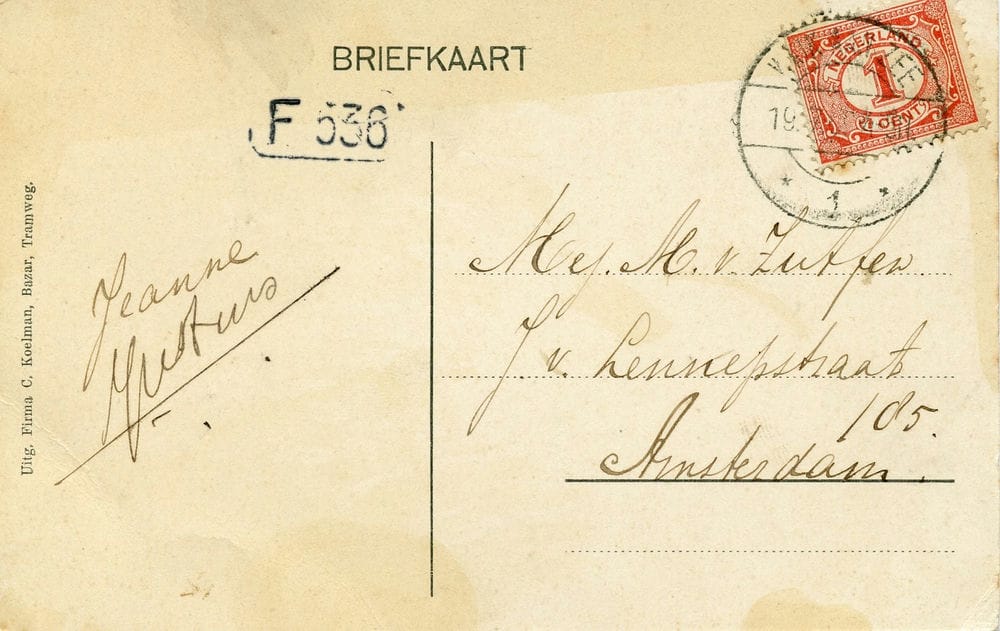 BRIEFKAART
F 536
NEDERLAND
1
CENT
19.
1
Mej. M. v. Zutfen
J. v. Lennepstraat
185.
Amsterdam.
Jeanne
Uitg. Firma C. Koelman, Bazar, Tramweg.